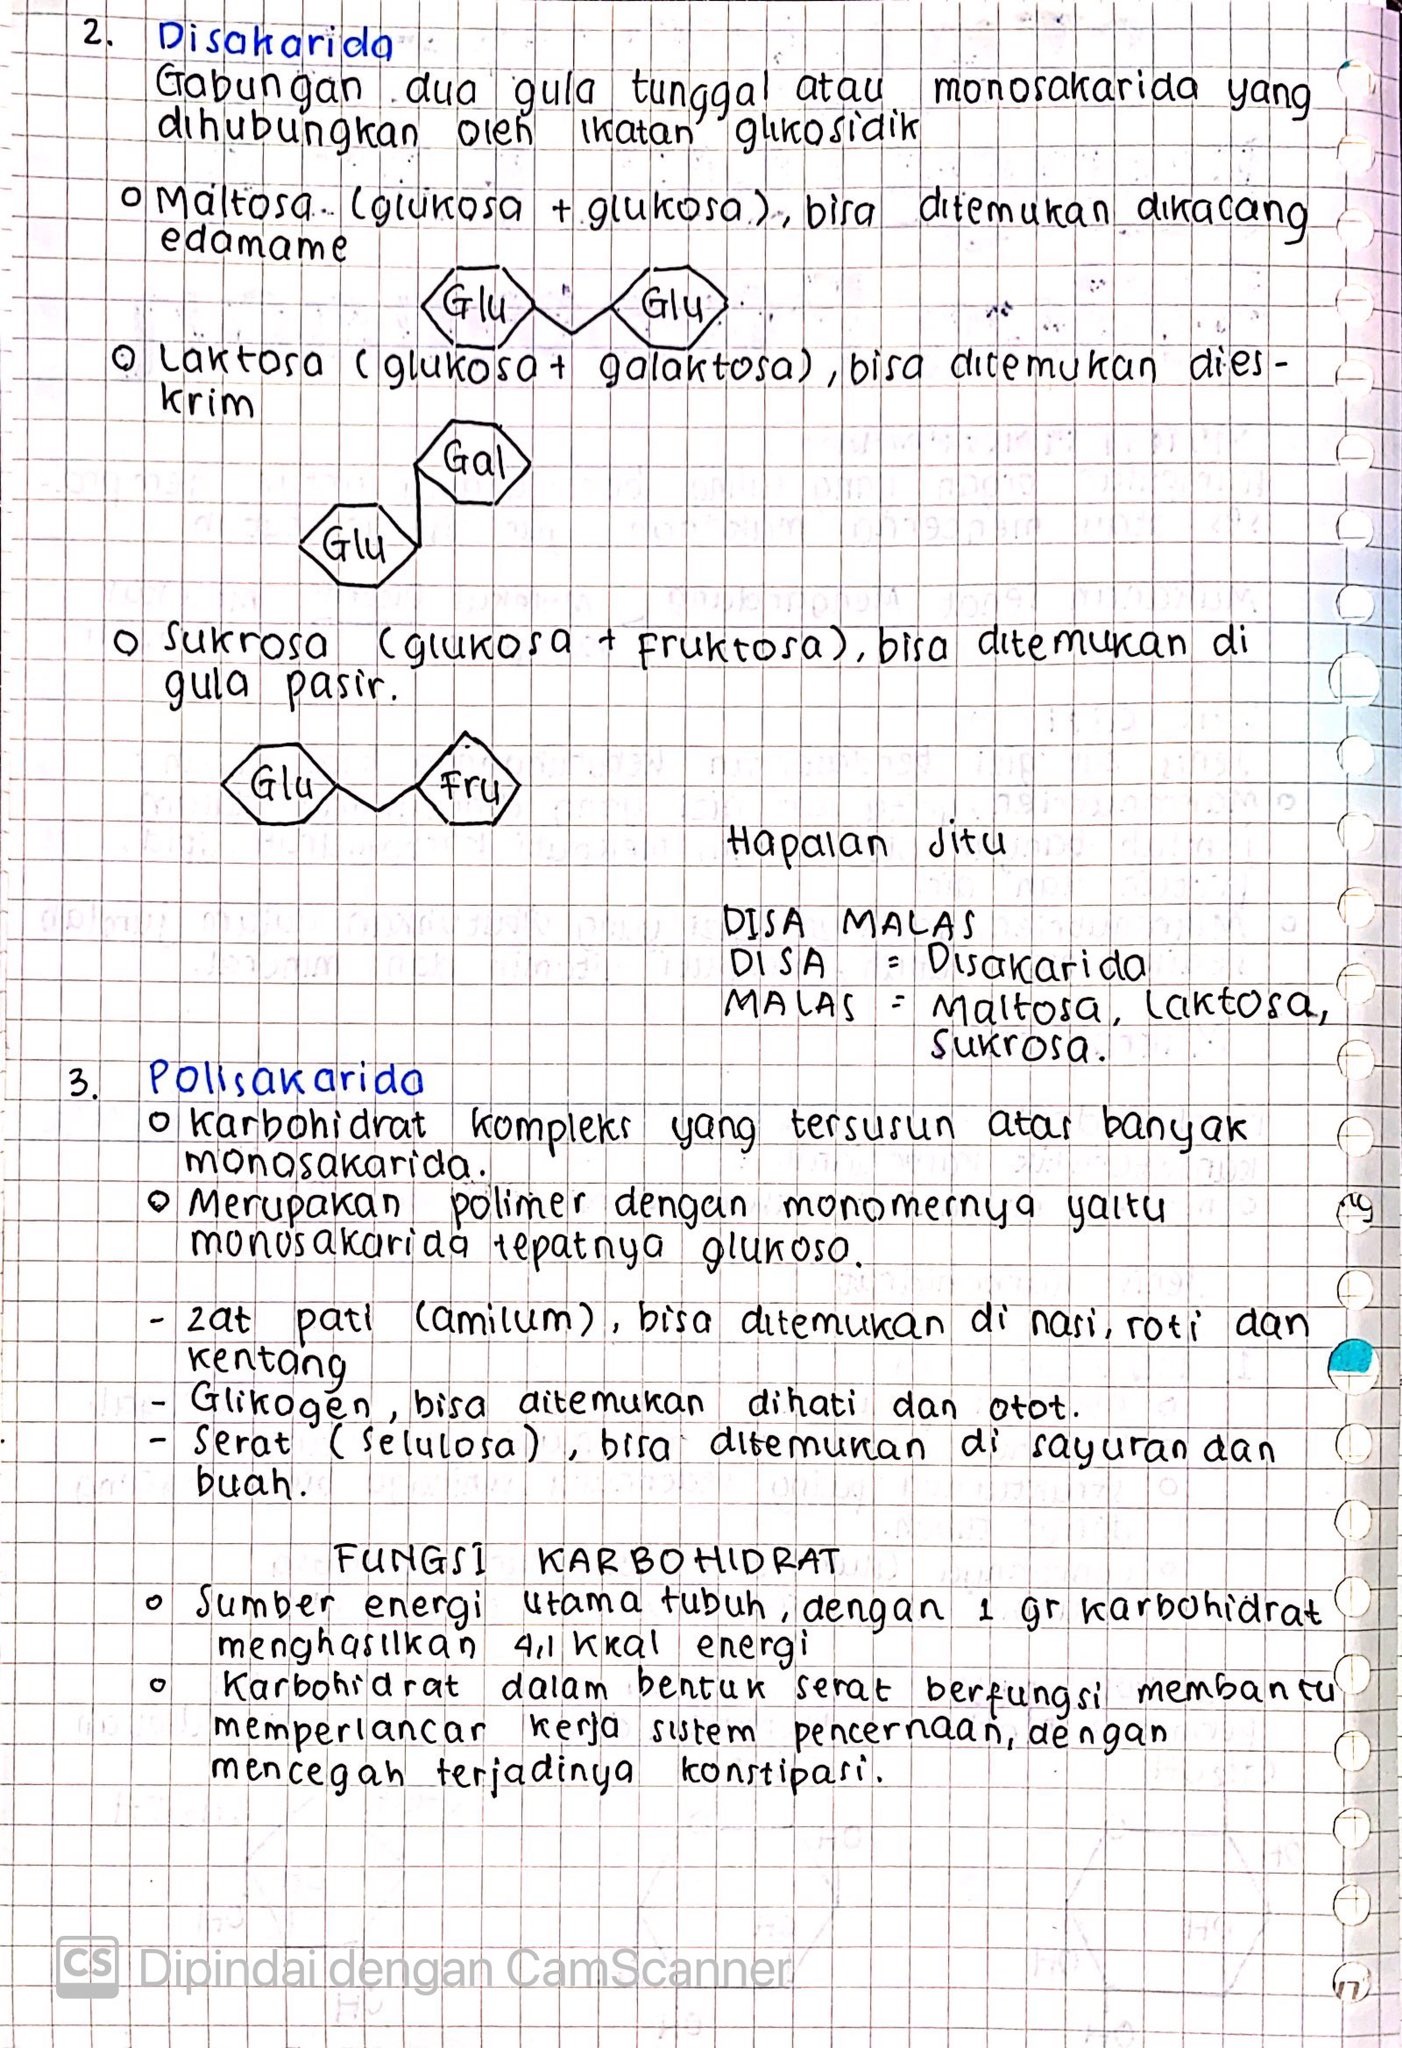 2. Disakarida
Gabungan dua gula tunggal atau monosakarida yang
dihubungkan oleh ikatan glikosidik
o Maltosa (glukosa + glukosa), bisa ditemukan dikacang
edamame
Glu Glu
o Laktosa (glukosa + galaktosa), bisa ditemukan dies-
krim
Gal
Glu
o Sukrosa (glukosa + Fruktosa), bisa ditemukan di
gula pasir.
Glu Fru
Hapalan Jitu
DISA MALAS
DISA = Disakarida
MALAS = Maltosa, Laktosa,
Sukrosa.
3. Polisakarida
o Karbohidrat kompleks yang tersusun atas banyak
monosakarida.
o Merupakan polimer dengan monomernya yaitu
monosakarida tepatnya glukosa.
- Zat pati (amilum), bisa ditemukan di nasi, roti dan
kentang
- Glikogen, bisa ditemukan dihati dan otot.
- Serat (selulosa), bisa ditemukan di sayuran dan
buah.
FUNGSI KARBOHIDRAT
o Sumber energi utama tubuh, dengan 1 gr karbohidrat
menghasilkan 4,1 kkal energi
o Karbohidrat dalam bentuk serat berfungsi membantu
memperlancar kerja sistem pencernaan, dengan
mencegah terjadinya konstipasi.
CS Dipindai dengan CamScanner